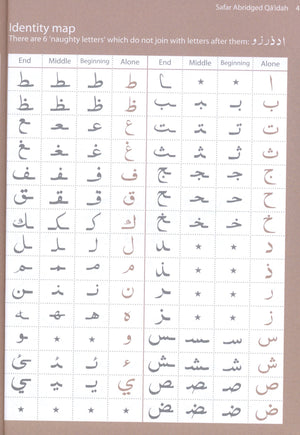 Safar Abridged Qā'idah 4
Identity map
There are 6 'naughty letters' which do not join with letters after them: ا د ذ ر ز و
End Middle Beginning Alone End Middle Beginning Alone
ا * * ـا ط طـ ـطـ ـط
ب بـ ـبـ ـب ظ ظـ ـظـ ـظ
ت تـ ـتـ ـت ع عـ ـعـ ـع
ث ثـ ـثـ ـث غ غـ ـغـ ـغ
ج جـ ـجـ ـج ف فـ ـفـ ـف
ح حـ ـحـ ـح ق قـ ـقـ ـق
خ خـ ـخـ ـخ ك كـ ـكـ ـك
د * * ـد ل لـ ـلـ ـل
ذ * * ـذ م مـ ـمـ ـم
ر * * ـر ن نـ ـنـ ـن
ز * * ـز ه هـ ـهـ ـه
س سـ ـسـ ـس و * * ـو
ش شـ ـشـ ـش ء ئـ ـئـ ـئ
ص صـ ـصـ ـص ي يـ ـيـ ـي
ض ضـ ـضـ ـض * * * *